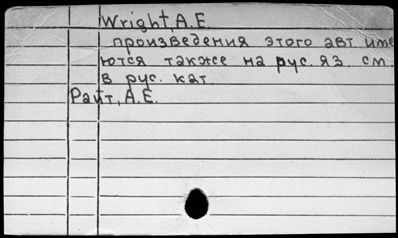 Wright, A.E.
произведения этого авт. име
ются также на рус. яз. см.
в рус. кат.
Райт, А.Е.